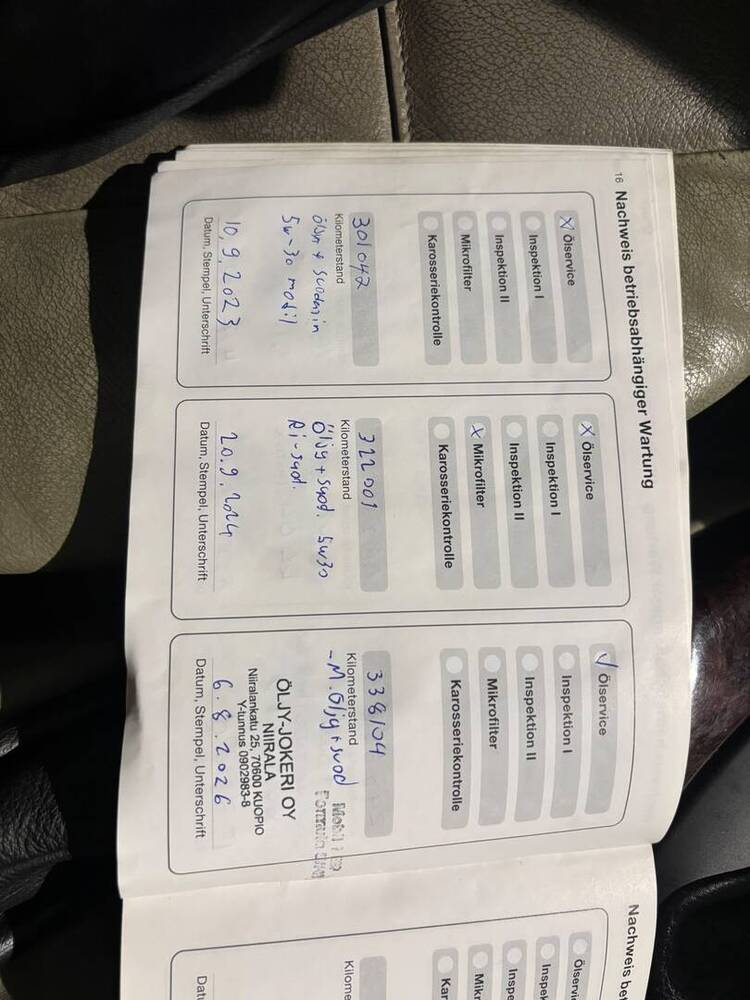 16 Nachweis betriebsabhängiger Wartung
X Ölservice
Inspektion I
Inspektion II
Mikrofilter
Karosseriekontrolle
301042
Kilometerstand
öljyn + suodatin
5w-30 mobil
10.9.2023
Datum, Stempel, Unterschrift
X Ölservice
Inspektion I
Inspektion II
X Mikrofilter
Karosseriekontrolle
322001
Kilometerstand
Öljy + suod. 5w30
Ri-suod.
20.9.2024
Datum, Stempel, Unterschrift
✓ Ölservice
Inspektion I
Inspektion II
Mikrofilter
Karosseriekontrolle
338104
Kilometerstand
-M.öljy + suod
Mobil 1 ESP
Formula 5W30
ÖLJY-JOKERI OY
NIIRALA
Niiralankatu 25, 70600 KUOPIO
Y-tunnus 0902983-8
6.8.2026
Datum, Stempel, Unterschrift
Nachweis be
Ölservice
Inspe
Inspe
Mikr
Kar
Kilome
Datu